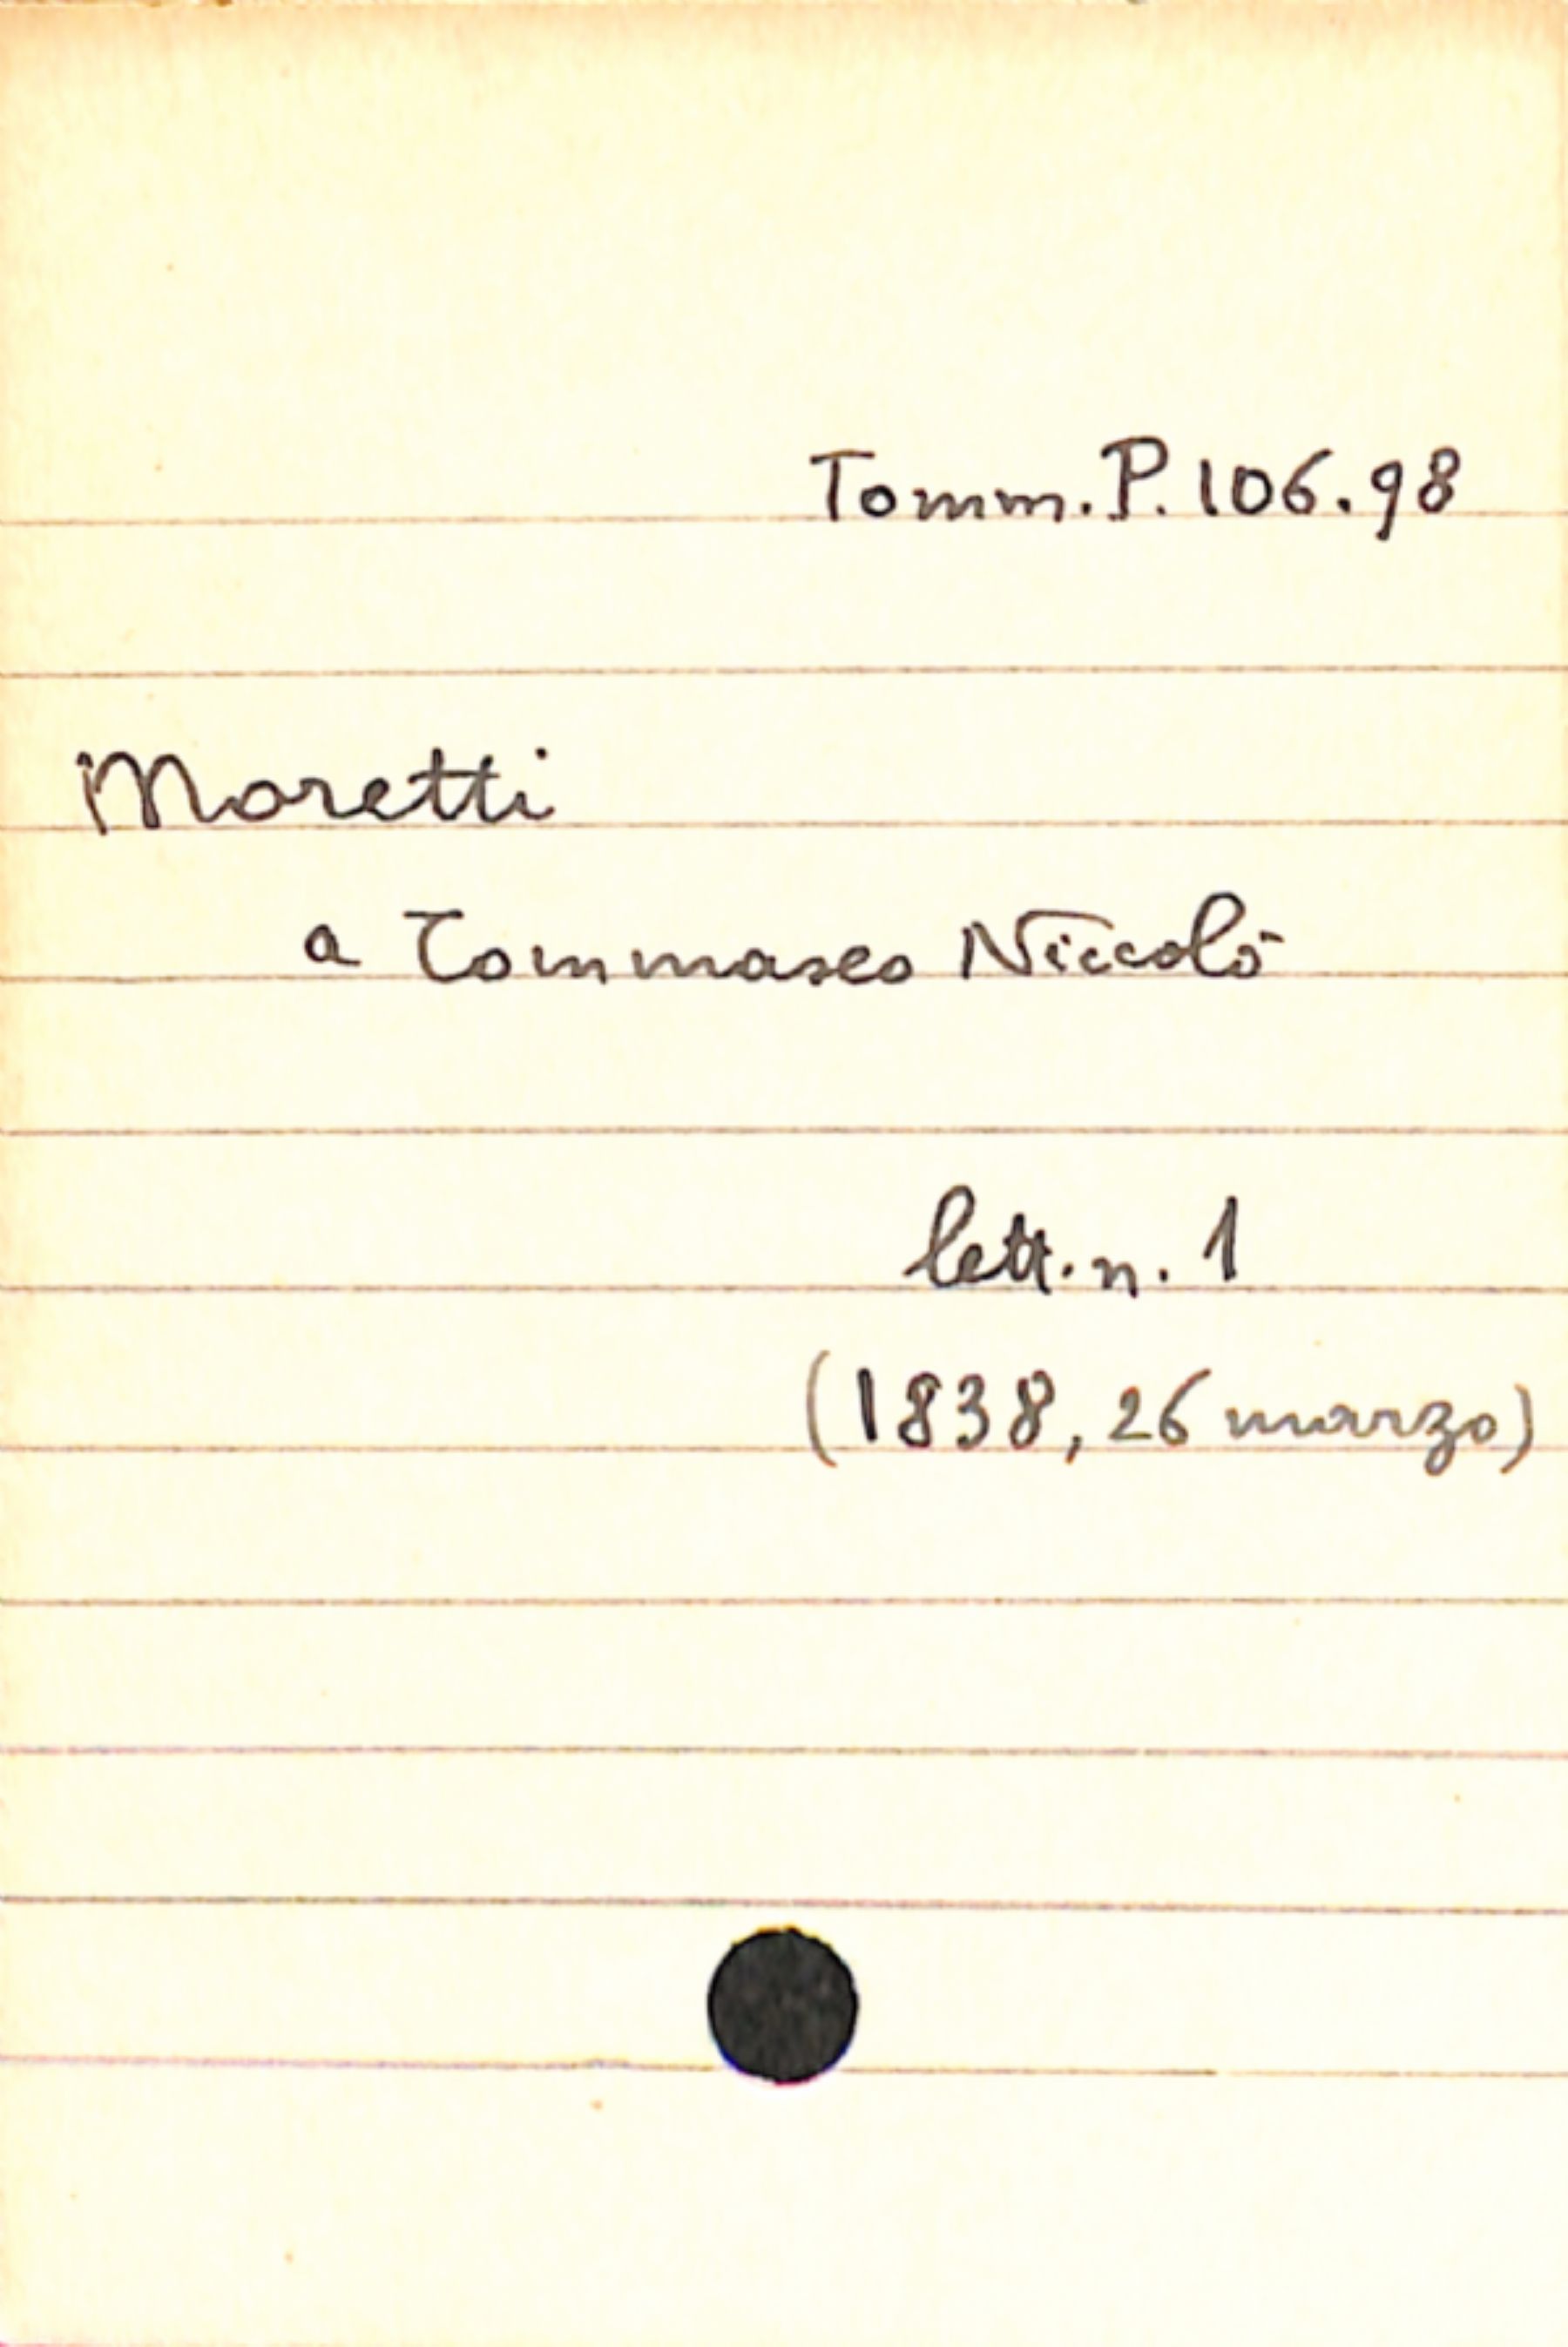 Tomm. P. 106.98
Moretti
a Tommaseo Niccolò
lett. n. 1
(1838, 26 marzo)